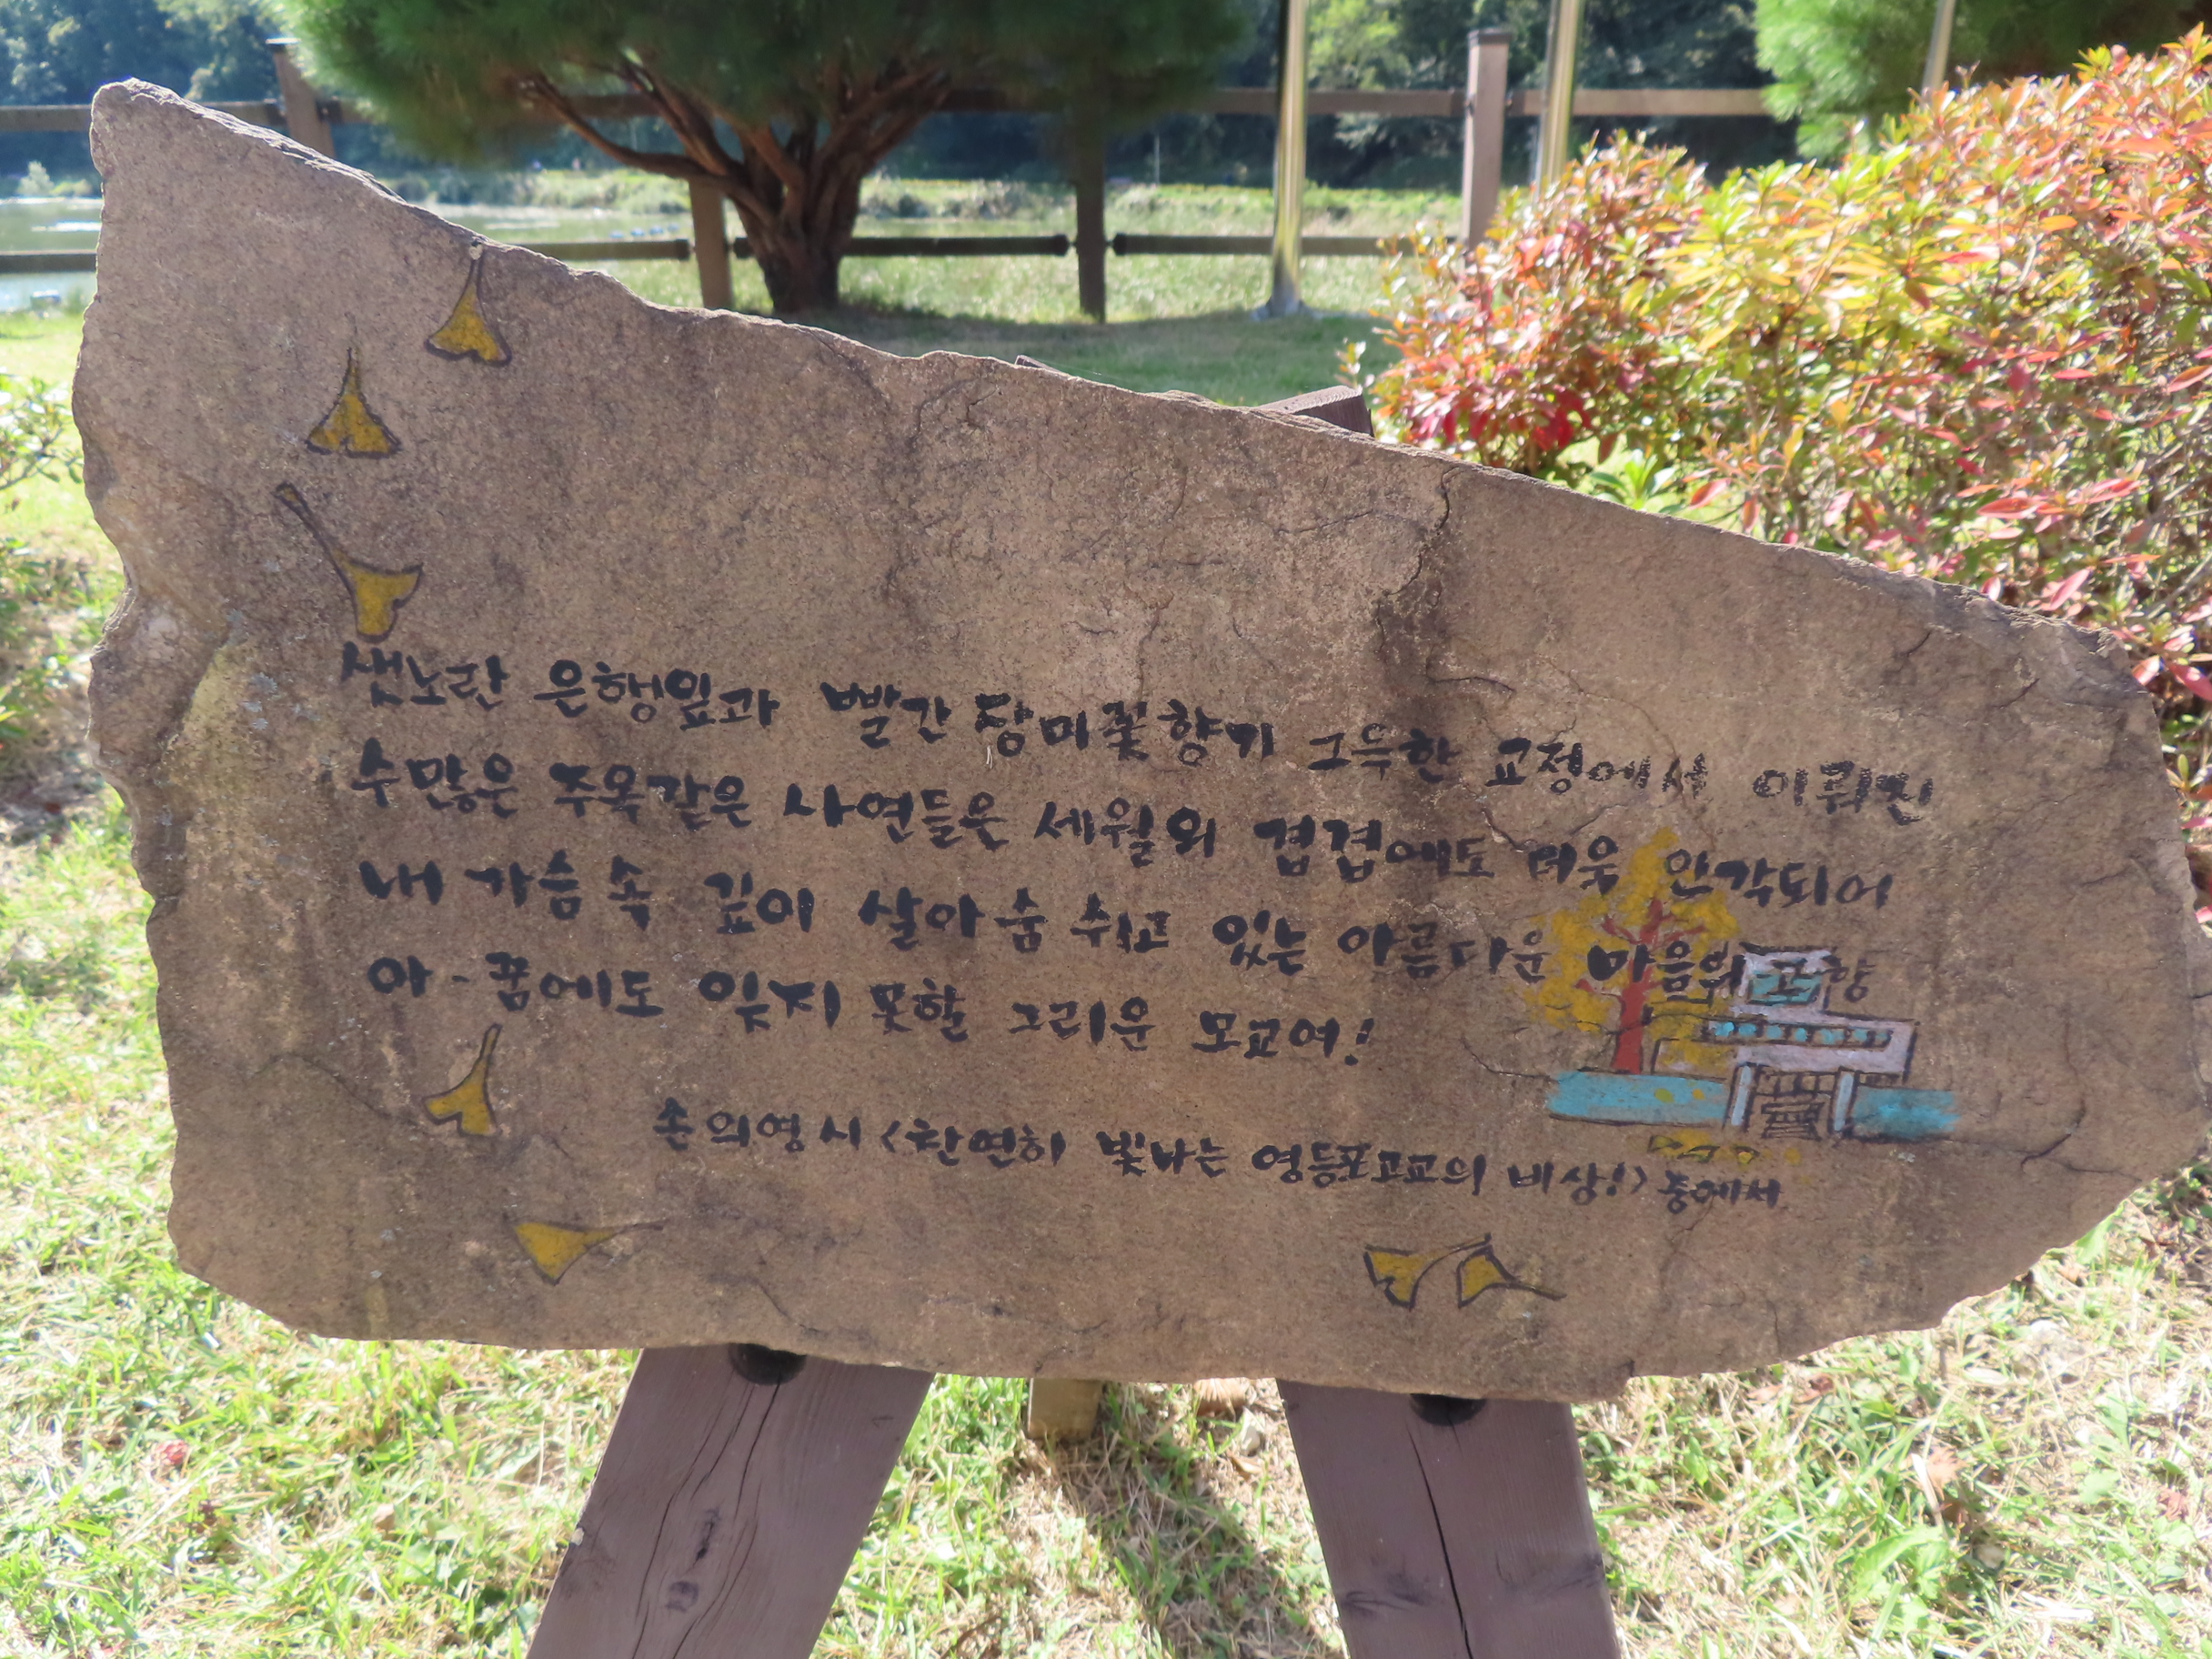 샛노란 은행잎과 빨간 장미꽃향기 그득한 교정에서 이뤄진
수많은 주옥같은 사연들은 세월의 겹겹에도 더욱 인각되어
내 가슴 속 깊이 살아 숨 쉬고 있는 아름다운 마음의 고향
아- 꿈에도 잊지 못할 그리운 모교여!
손의영 시 <찬연히 빛나는 영등포고교의 비상!> 중에서